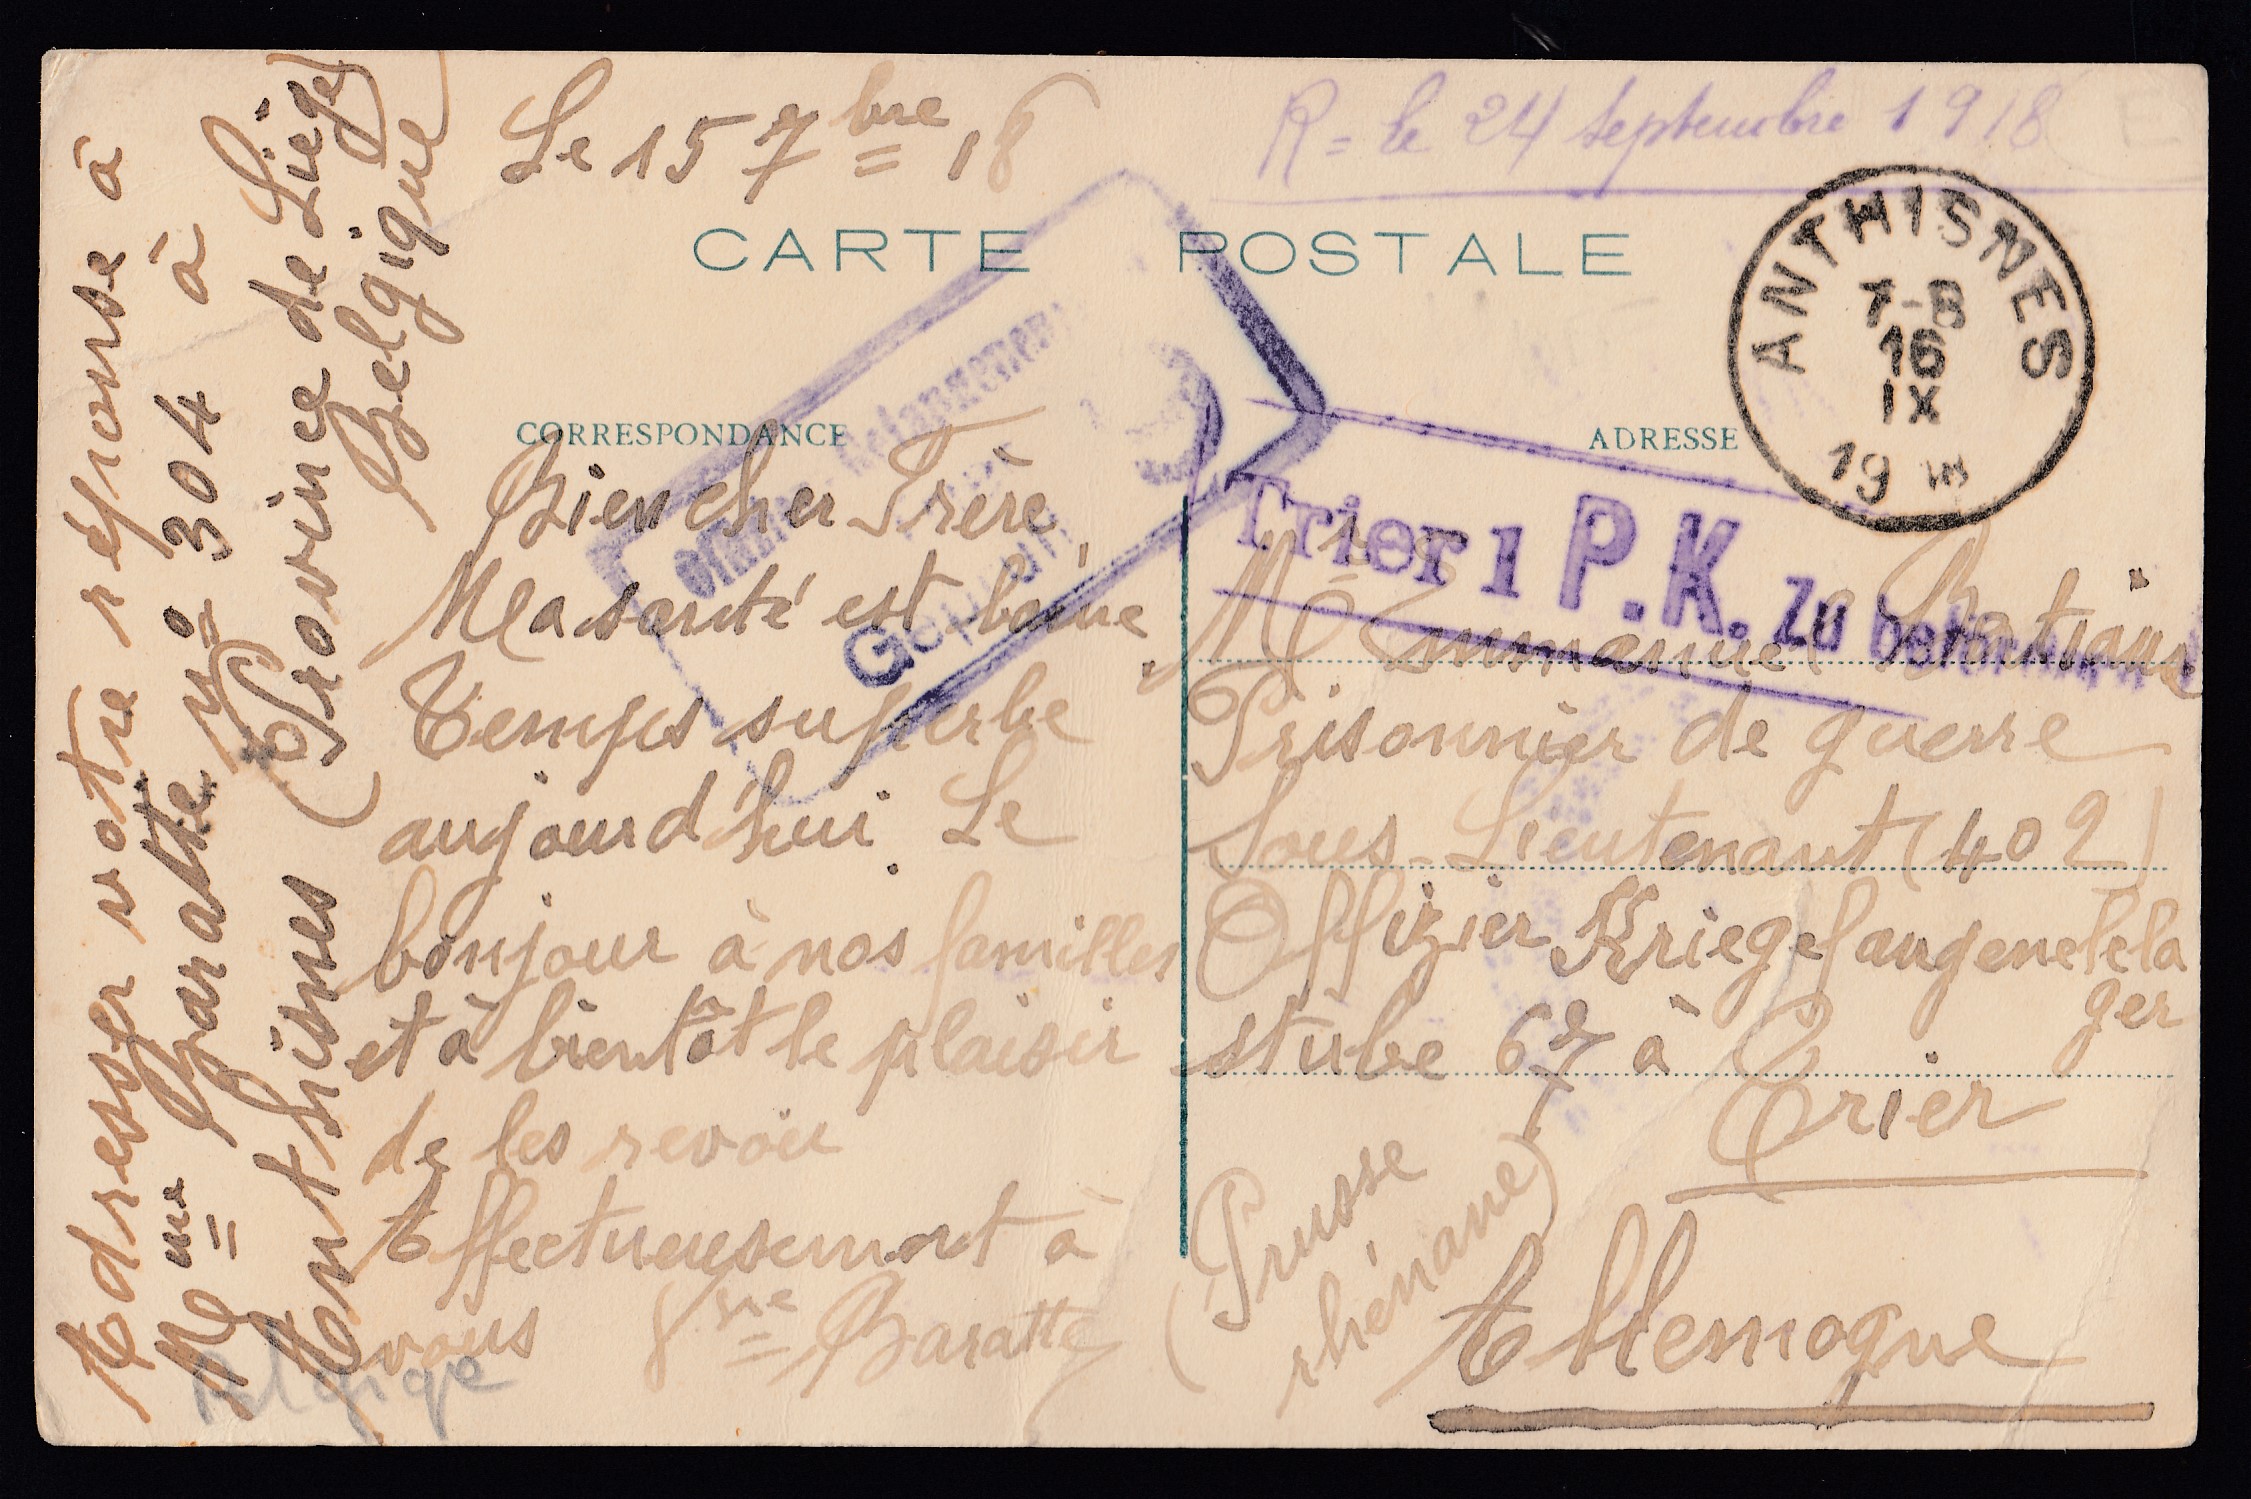 Le 15 7bre 18
R = le 24 septembre 1918
CARTE POSTALE
ANTHISNES
7-8
16
IX
19
CORRESPONDANCE
ADRESSE
Bien cher Frère
Ma santé est bonne
Temps superbe
aujourd'hui. Le
bonjour à nos familles
et à bientôt le plaisir
de les revoir
Affectueusement à
vous Baratte
Adresser votre réponse à
Mme Baratte No 304 à
Anthisnes (Province de Liège)
Belgique
Trier 1 P.K. zu
Mr Emmanuel
Prisonnier de guerre
Sous-Lieutenant (402)
Offizier Kriegefangenelela
ger
stube 67 à Trier
(Prusse
rhénane)
Allemagne